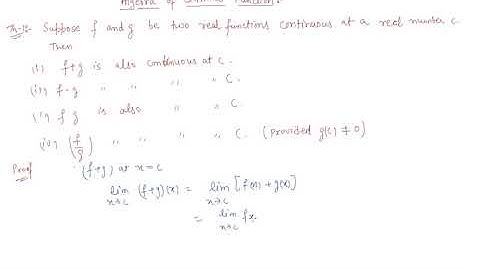 Algebra of Continuous Functions:
Th-1:- Suppose f and g be two real functions continuous at a real number c.
Then
(i) f+g is also continuous at c.
(ii) f-g " " " " C.
(iii) f g is also " " C.
(iv) (f/g) " " " " C. (Provided g(c) ≠ 0)
Proof (f+g) at x=c
lim x→c (f+g)(x) = lim x→c [f(x) + g(x)]
= lim x→c fx